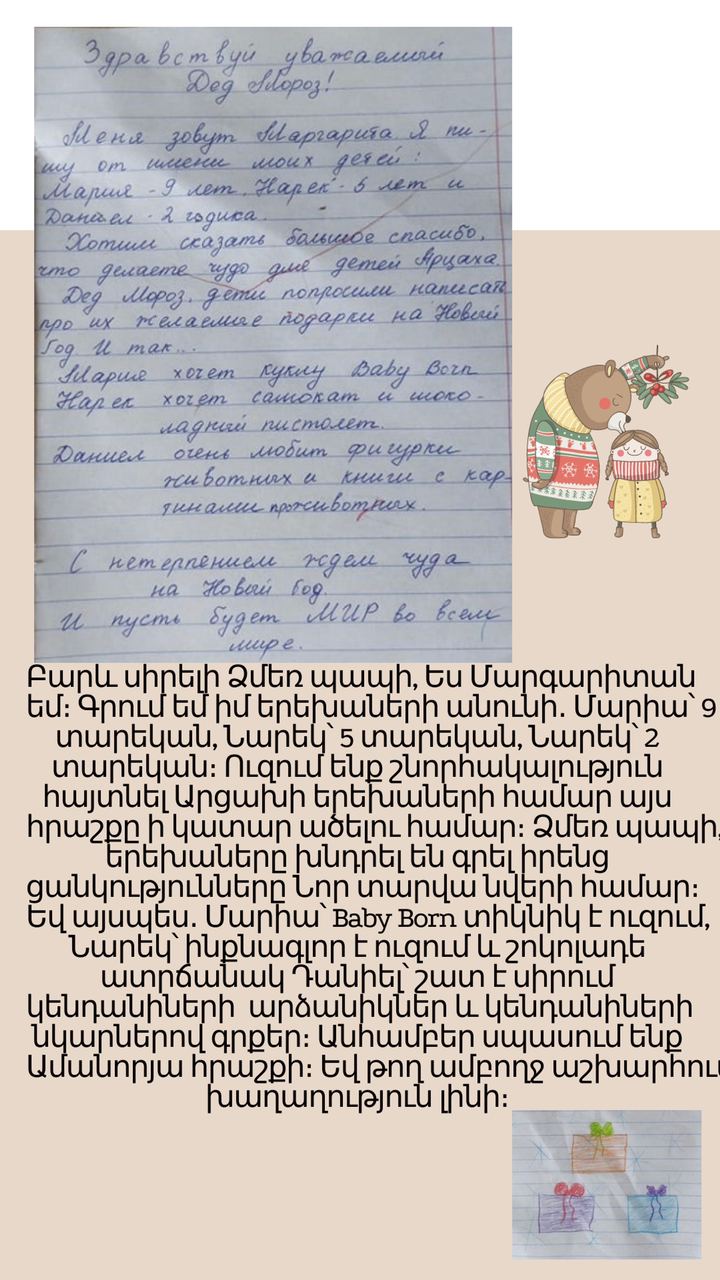 Здравствуй уважаемый
Дед Мороз!
Меня зовут Маргарита. Я пи-
шу от имени моих детей:
Мария - 9 лет, Нарек - 5 лет и
Даниел - 2 годика.
Хотим сказать большое спасибо,
что делаете чудо для детей Арцаха.
Дед Мороз, дети попросили написать
про их желаемые подарки на Новый
Год. И так...
Мария хочет куклу Baby Born
Нарек хочет самокат и шоко-
ладный пистолет.
Даниел очень любит фигурки
животных и книги с кар-
тинами про животных.
С нетерпением ждем чуда
на Новый Год.
И пусть будет МИР во всем
мире.
Բարև սիրելի Ձմեռ պապի, Ես Մարգարիտան
եմ։ Գրում եմ իմ երեխաների անունի․ Մարիա՝ 9
տարեկան, Նարեկ՝ 5 տարեկան, Նարեկ՝ 2
տարեկան։ Ուզում ենք շնորհակալություն
հայտնել Արցախի երեխաների համար այս
հրաշքը ի կատար ածելու համար։ Ձմեռ պապի,
երեխաները խնդրել են գրել իրենց
ցանկությունները Նոր տարվա նվերի համար։
Եվ այսպես․ Մարիա՝ Baby Born տիկնիկ է ուզում,
Նարեկ՝ ինքնագլոր է ուզում և շոկոլադե
ատրճանակ Դանիել՝ շատ է սիրում
կենդանիների արձանիկներ և կենդանիների
նկարներով գրքեր։ Անհամբեր սպասում ենք
Ամանորյա հրաշքի։ Եվ թող ամբողջ աշխարհում
խաղաղություն լինի։